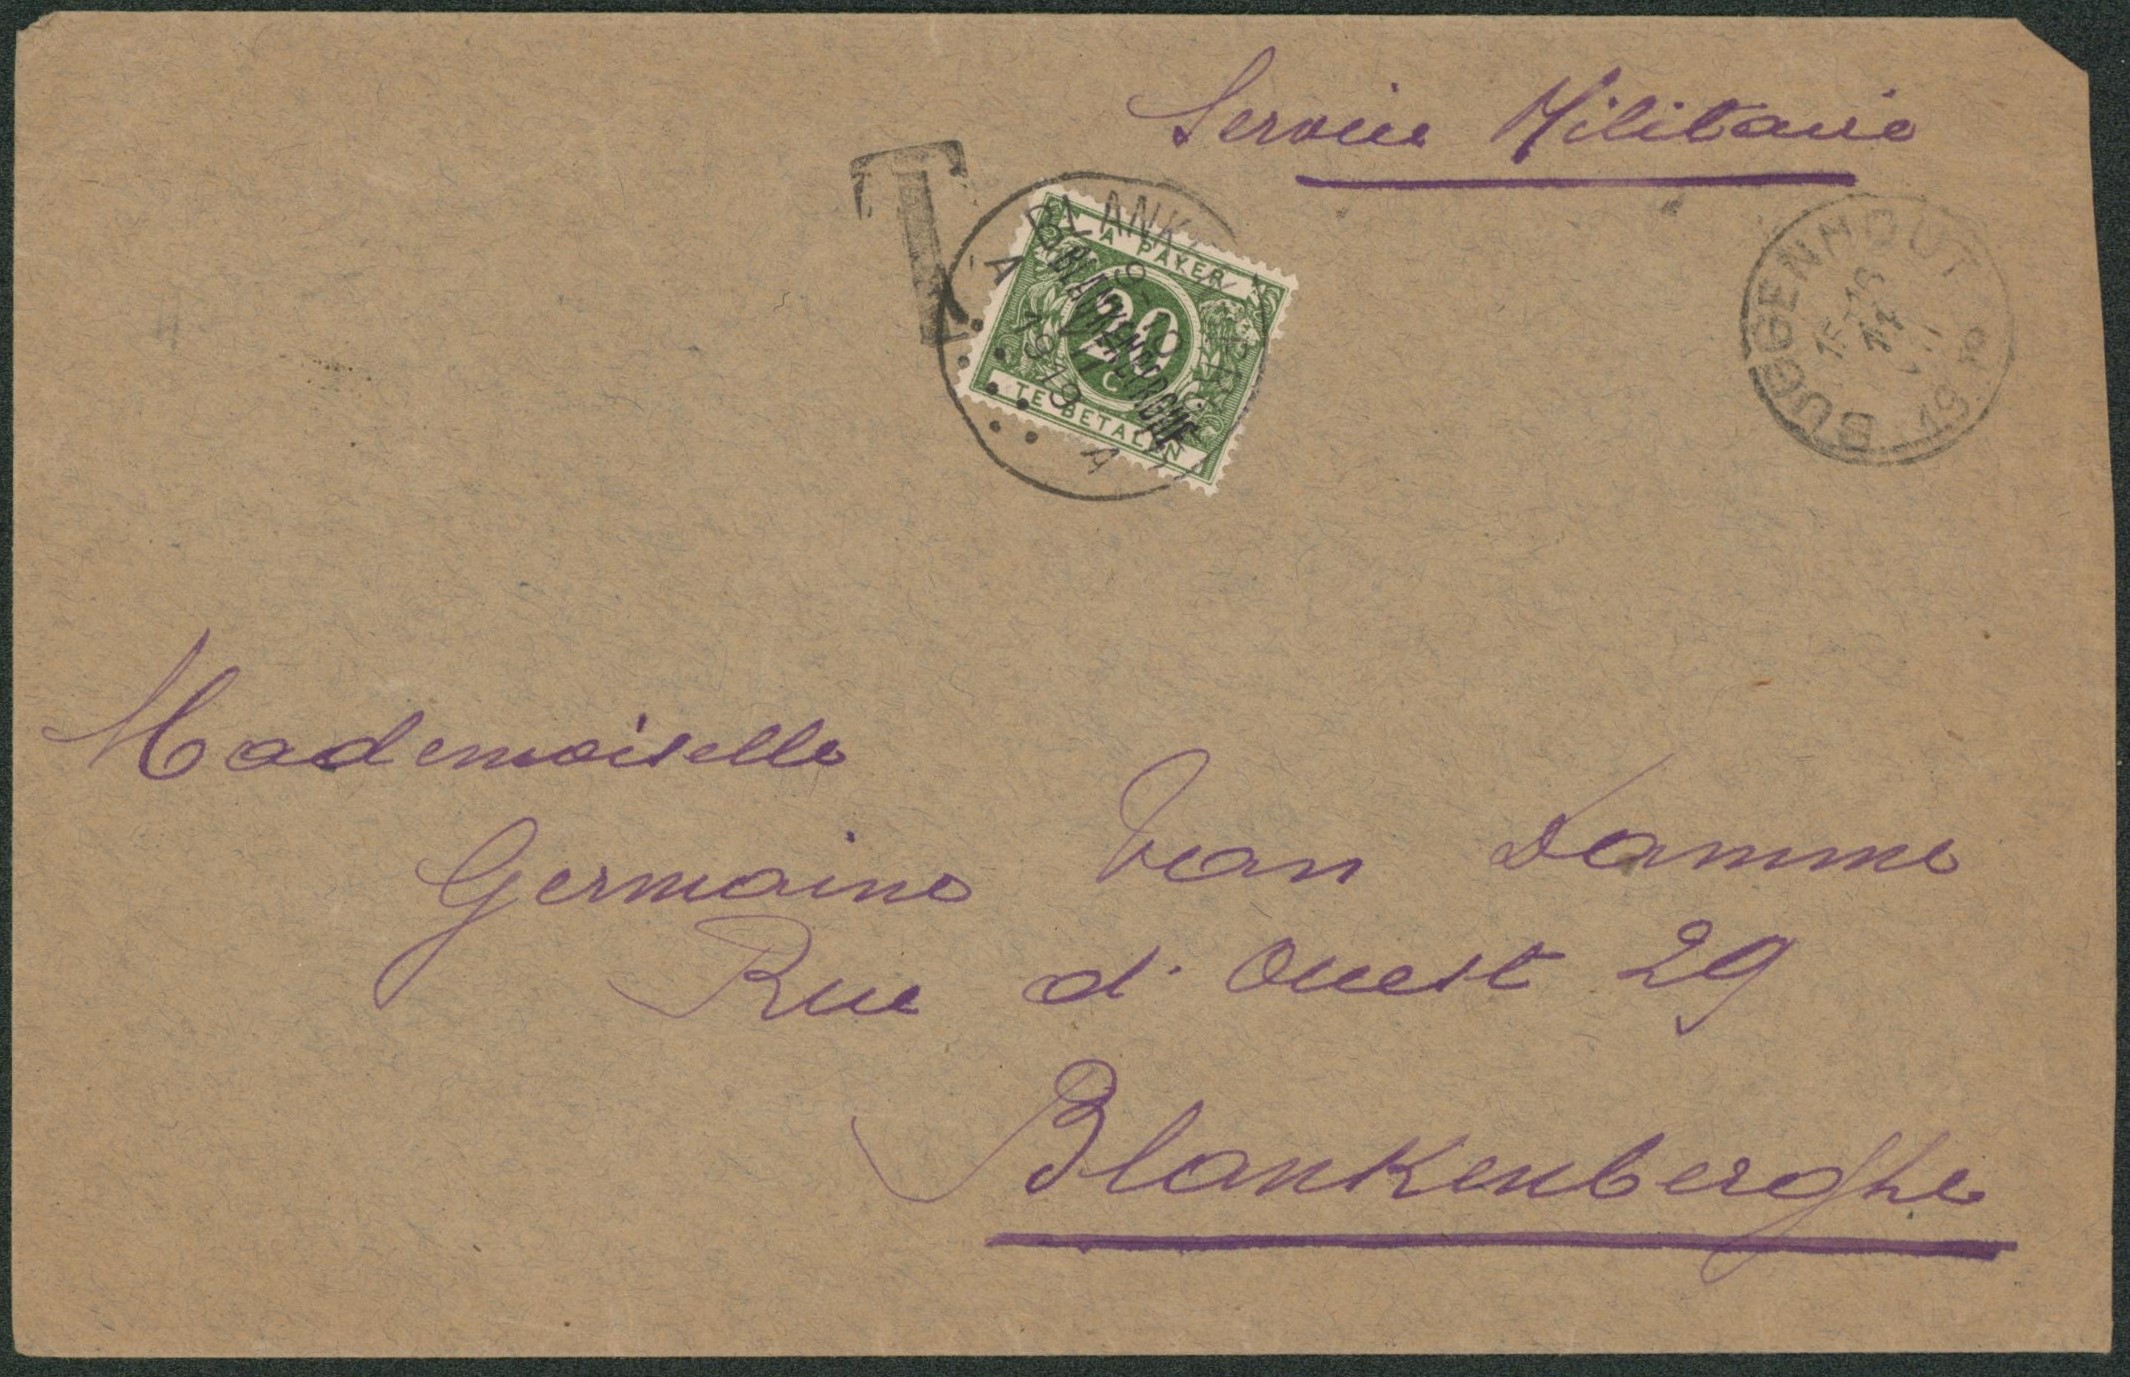 Service Militaire
T
BLANKE
A PAYER
20
C
TE BETALEN
BLANKENBERGHE
1919
A A
BUGGENHOUT
15-16
11
19
Mademoiselle
Germaine Van Damme
Rue d'Ouest 29
Blankenberghe